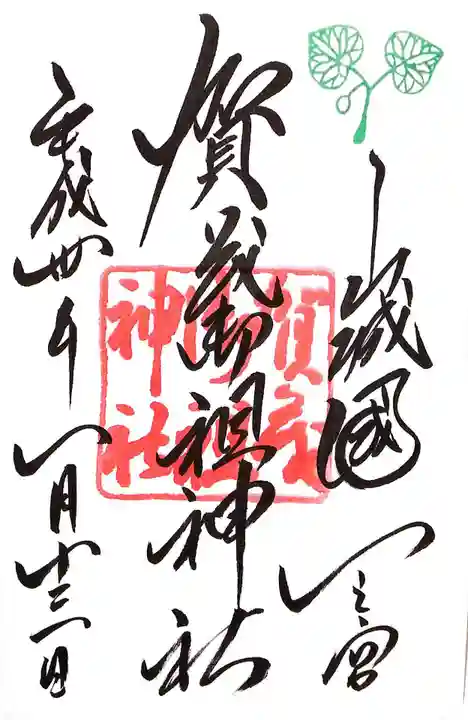 山城國一之宮
賀茂御祖神社
平成卅年八月廿三日
賀茂
御祖
神社